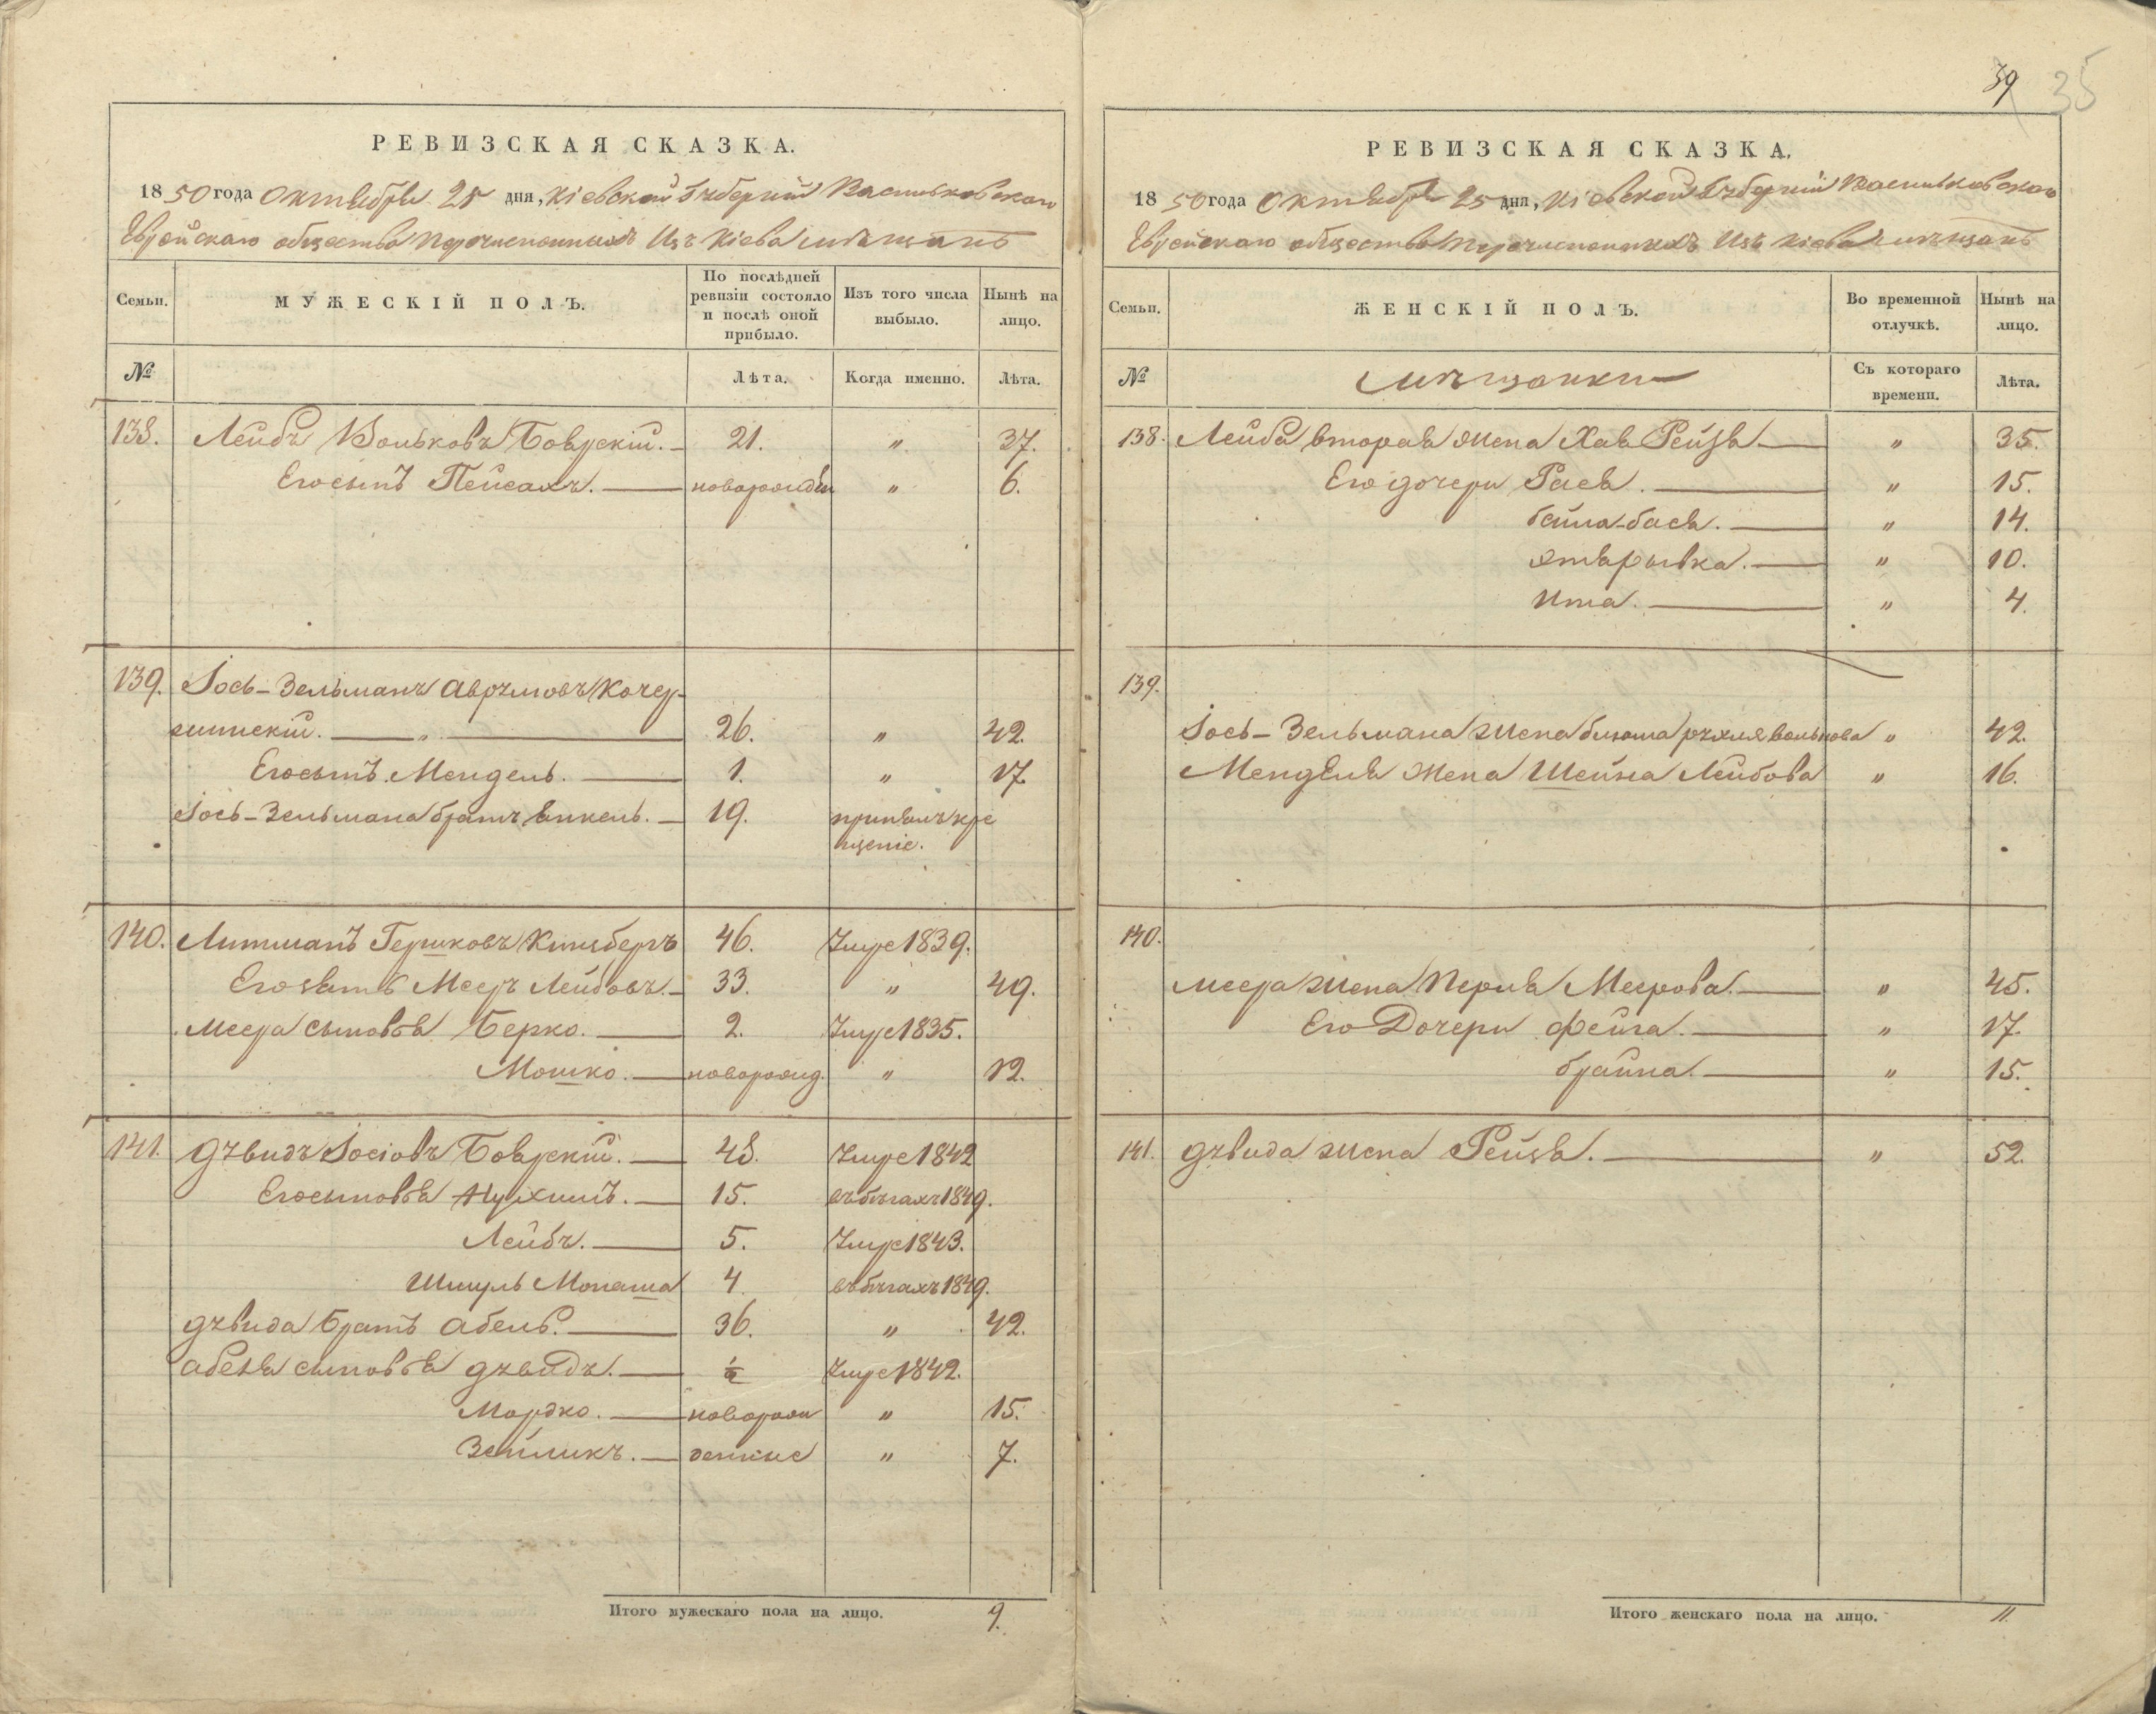 39 35
РЕВИЗСКАЯ СКАЗКА.
1850 года Октября 25 дня, Кіевской Губерніи Васильковскаго
Еврейскаго общества перечисленныхъ Изъ Кіева мѣщанъ
Семьи. МУЖЕСКІЙ ПОЛЪ. По послѣдней ревизіи состояло и послѣ оной прибыло. Изъ того числа выбыло. Нынѣ на лицо.
№ Лѣта. Когда именно. Лѣта.
138. Лейбъ Вольковъ Боярскій. 21. „ 37.
Его сынъ Пейсахъ. новорожден „ 6.
139. Іось-Зельманъ Аврумовъ Кочер-
жинскій. „ 26. „ 42.
Его сынъ Мендель. 1. „ 17.
Іось-Зельмана братъ Янкель. 19. принялъ кре
щеніе.
140. Литманъ Гершковъ 46. Умре 1839.
Его зять Мееръ Лейбовъ. 33. „ 49.
Меера сыновья Берко. 2. Умре 1835.
Мошко. новорожд. „ 12.
141. Дувидъ Іосіовъ Боярскій. 48. Умре 1842
Его сыновья Нухимъ. 15. въ бѣгахъ 1849.
Лейбъ. 5. Умре 1843.
Шмуль Монаша 4. въ бѣгахъ 1849.
Дувида братъ Абель. 36. „ 42.
Абеля сыновья Дувидъ. ½ Умре 1842.
Мордко. новорож „ 15.
Зейликъ. денные „ 7.
Итого мужескаго пола на лицо. 9.
РЕВИЗСКАЯ СКАЗКА.
1850 года Октября 25 дня, Кіевской Губерніи Васильковскаго
Еврейскаго общества перечисленныхъ Изъ Кіева мѣщанъ
Семьи. ЖЕНСКІЙ ПОЛЪ. Во временной отлучкѣ. Нынѣ на лицо.
№ Мѣщанки Съ котораго времени. Лѣта.
138. Лейба вторая жена Хая Рейзя „ 35.
Его дочери Рася. „ 15.
бейла-бася. „ 14.
„ 10.
Ита. „ 4.
139.
Іось-Зельмана жена блюма рухля Волькова „ 42.
Менделя жена Шейна Лейбова „ 16.
140.
Меера жена Перля Меерова. „ 45.
Его Дочери Фейга. „ 17.
брайна. „ 15.
141. Дувида жена Рейзя. „ 52.
Итого женскаго пола на лицо. 11.